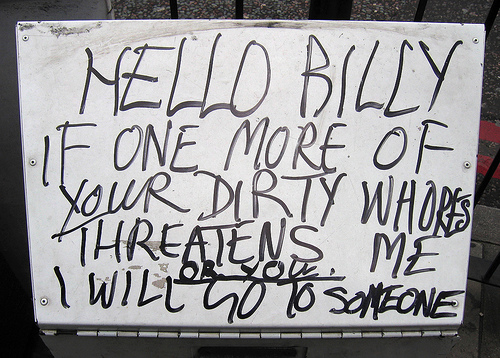 HELLO BILLY
IF ONE MORE OF
YOUR DIRTY WHORES
THREATENS ME
OR YOU.
I WILL GO TO SOMEONE